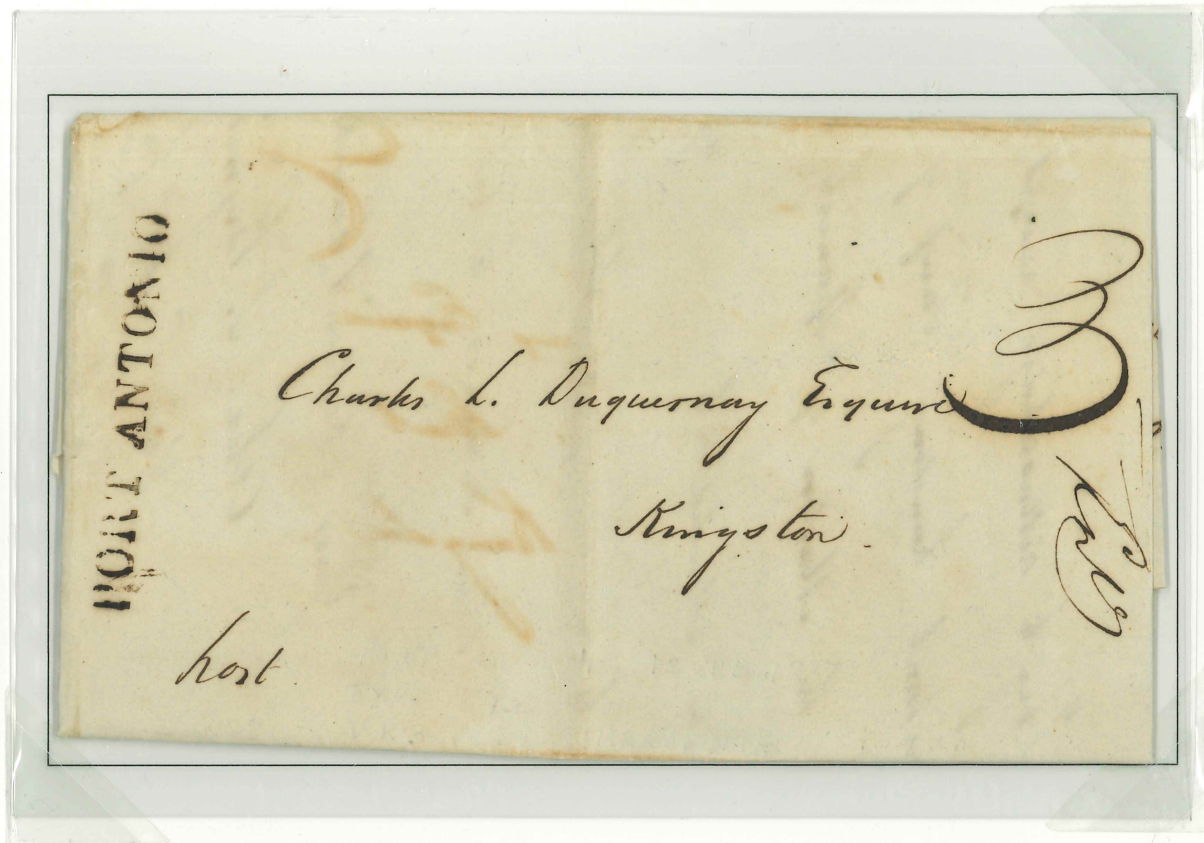 PORT ANTONIO
Charles L. Duquesnay Esquire
Kingston.
post